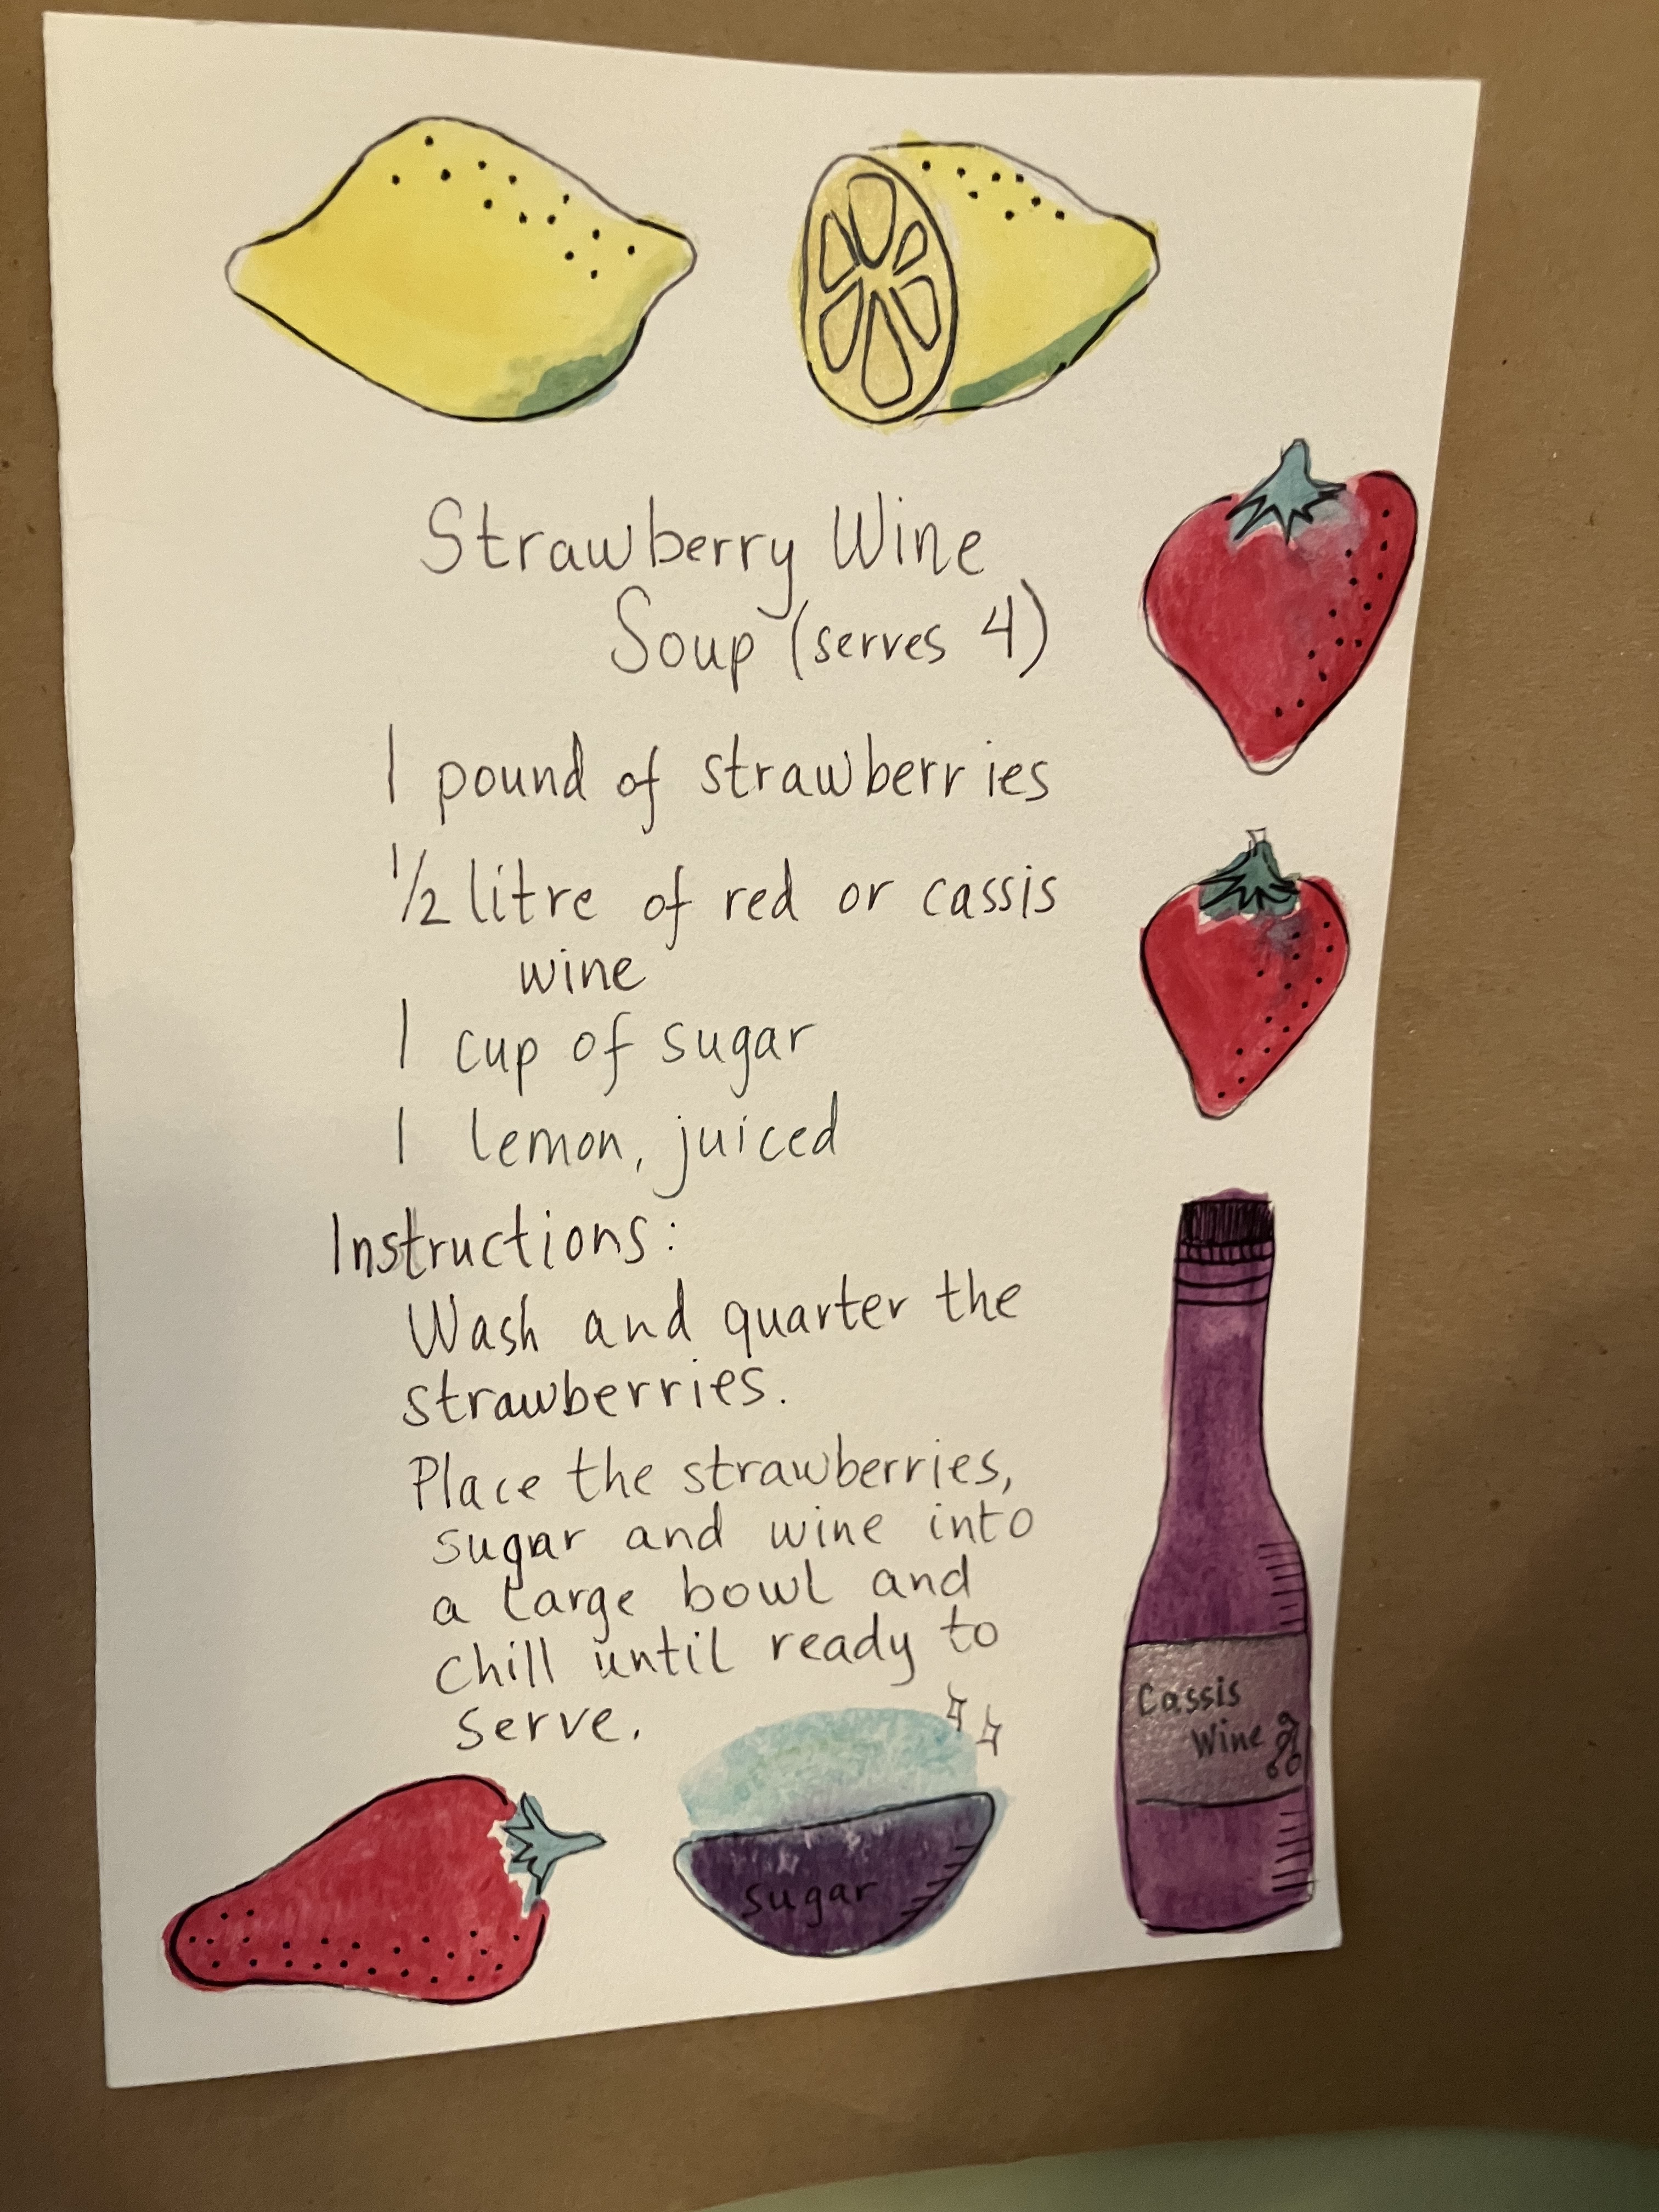 Strawberry Wine
Soup (serves 4)
1 pound of strawberries
1/2 litre of red or cassis
wine
1 cup of sugar
1 lemon, juiced
Instructions:
Wash and quarter the
strawberries.
Place the strawberries,
sugar and wine into
a large bowl and
chill until ready to
serve.
Cassis
Wine
sugar